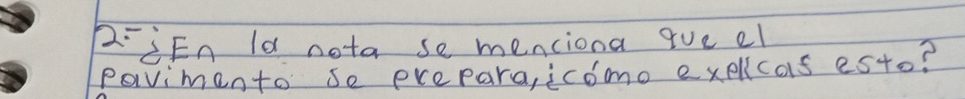 2.- ¿En la nota se menciona que el
pavimento se prepara, ¿cómo explicas esto?